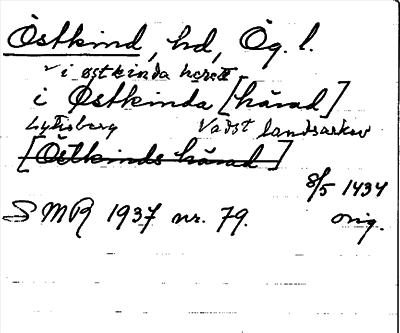 Östkind, hd, Ög. l.
i østkinda herett
i Østkinda [härad]
Lytisberg Vadst landsarkiv
[Östkinds härad]
8/5 1434
SMR 1937 nr. 79. orig.